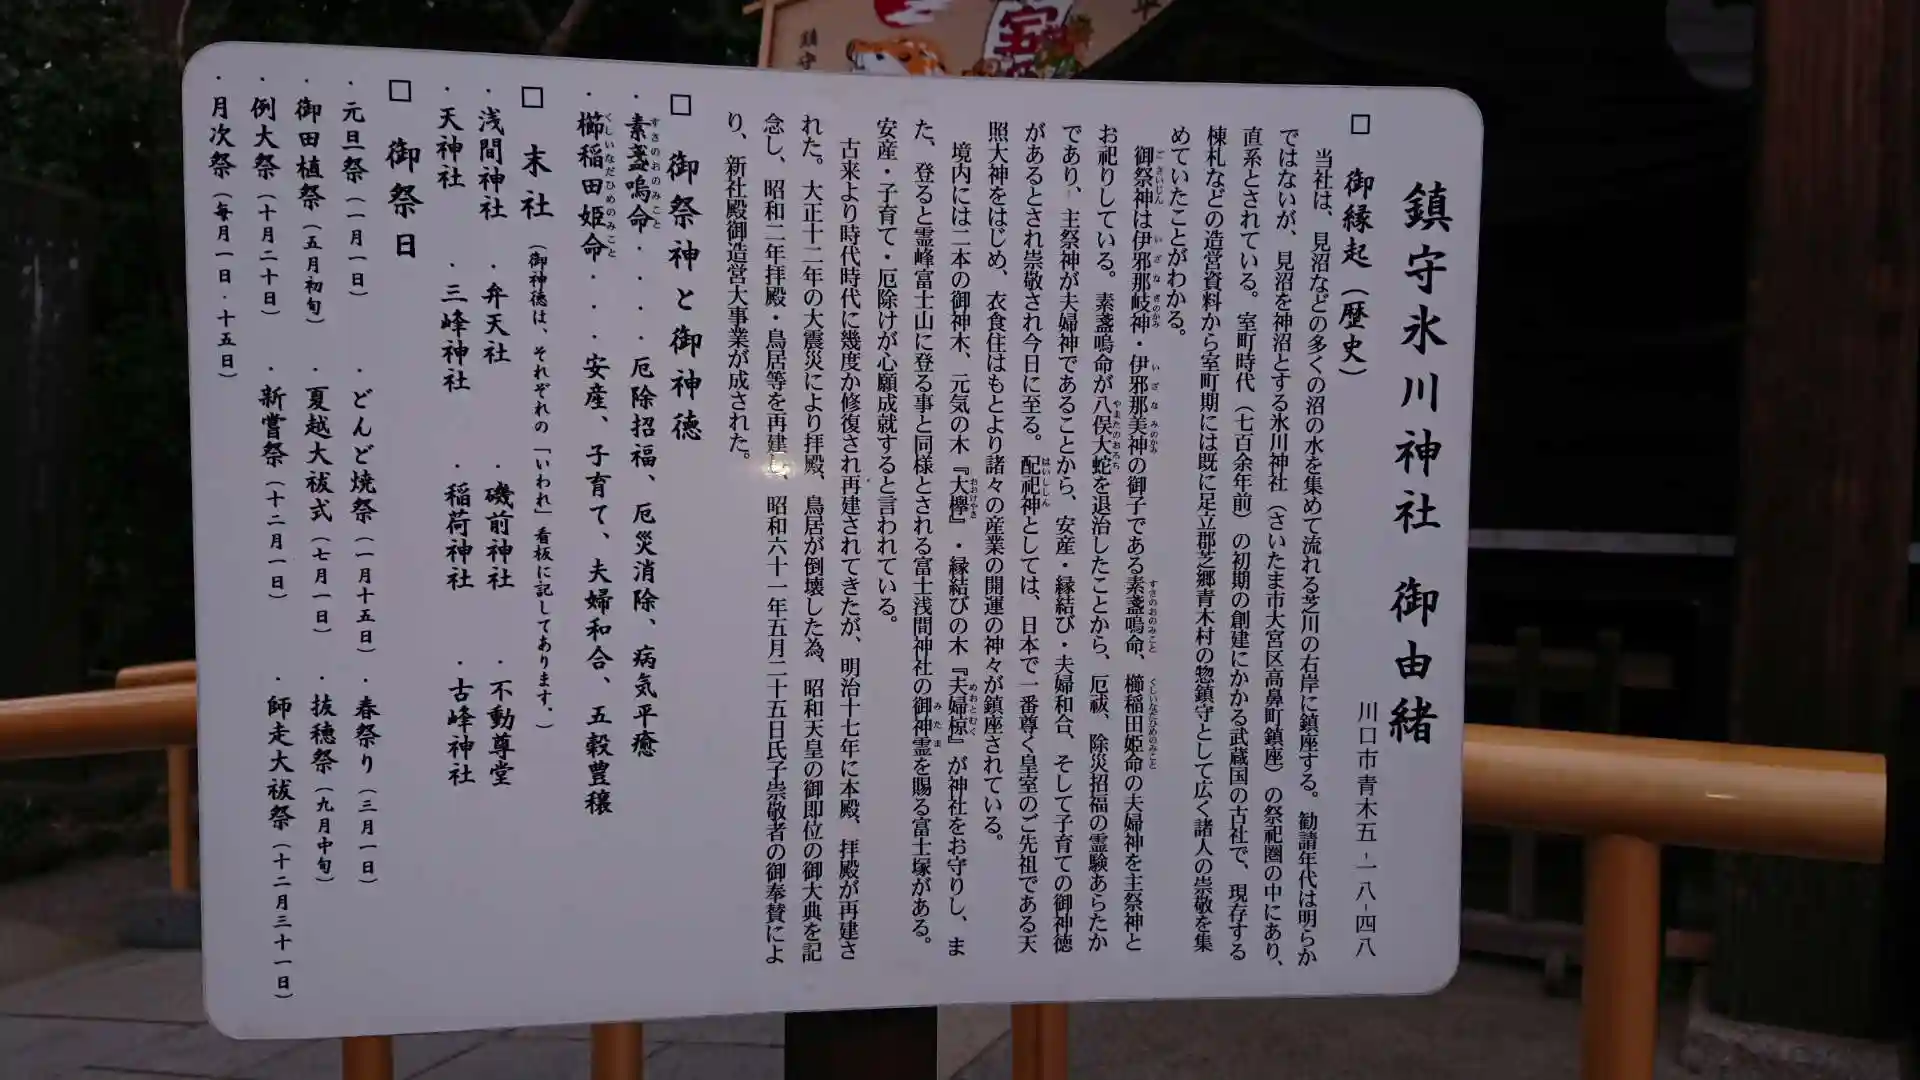 鎮守氷川神社 御由緒
川口市青木五-一八-四八
□ 御縁起（歴史）
当社は、見沼などの多くの沼の水を集めて流れる芝川の右岸に鎮座する。勧請年代は明らか
ではないが、見沼を神沼とする氷川神社（さいたま市大宮区高鼻町鎮座）の祭祀圏の中にあり、
直系とされている。室町時代（七百余年前）の初期の創建にかかる武蔵国の古社で、現存する
棟札などの造営資料から室町期には既に足立郡芝郷青木村の惣鎮守として広く諸人の崇敬を集
めていたことがわかる。
御祭神は伊邪那岐神・伊邪那美神の御子である素盞嗚命、櫛稲田姫命の夫婦神を主祭神と
お祀りしている。素盞嗚命が八俣大蛇を退治したことから、厄祓、除災招福の霊験あらたか
であり、主祭神が夫婦神であることから、安産・縁結び・夫婦和合、そして子育ての御神徳
があるとされ崇敬され今日に至る。配祀神としては、日本で一番尊く皇室のご先祖である天
照大神をはじめ、衣食住はもとより諸々の産業の開運の神々が鎮座されている。
境内には二本の御神木、元気の木『大欅』・縁結びの木『夫婦椋』が神社をお守りし、ま
た、登ると霊峰富士山に登る事と同様とされる富士浅間神社の御神霊を賜る富士塚がある。
安産・子育て・厄除けが心願成就すると言われている。
古来より時代時代に幾度か修復され再建されてきたが、明治十七年に本殿、拝殿が再建さ
れた。大正十二年の大震災により拝殿、鳥居が倒壊した為、昭和天皇の御即位の御大典を記
念し、昭和二年拝殿・鳥居等を再建し、昭和六十一年五月二十五日氏子崇敬者の御奉賛によ
り、新社殿御造営大事業が成された。
□ 御祭神と御神徳
・素盞嗚命・・・・厄除招福、厄災消除、病気平癒
・櫛稲田姫命・・・安産、子育て、夫婦和合、五穀豊穣
□ 末社（御神徳は、それぞれの「いわれ」看板に記してあります。）
・浅間神社 ・弁天社 ・磯前神社 ・不動尊堂
・天神社 ・三峰神社 ・稲荷神社 ・古峰神社
□ 御祭日
・元旦祭（一月一日） ・どんど焼祭（一月十五日） ・春祭り（三月一日）
・御田植祭（五月初旬） ・夏越大祓式（七月一日） ・抜穂祭（九月中旬）
・例大祭（十月二十日） ・新嘗祭（十二月一日） ・師走大祓祭（十二月三十一日）
・月次祭（毎月一日・十五日）
鎮守